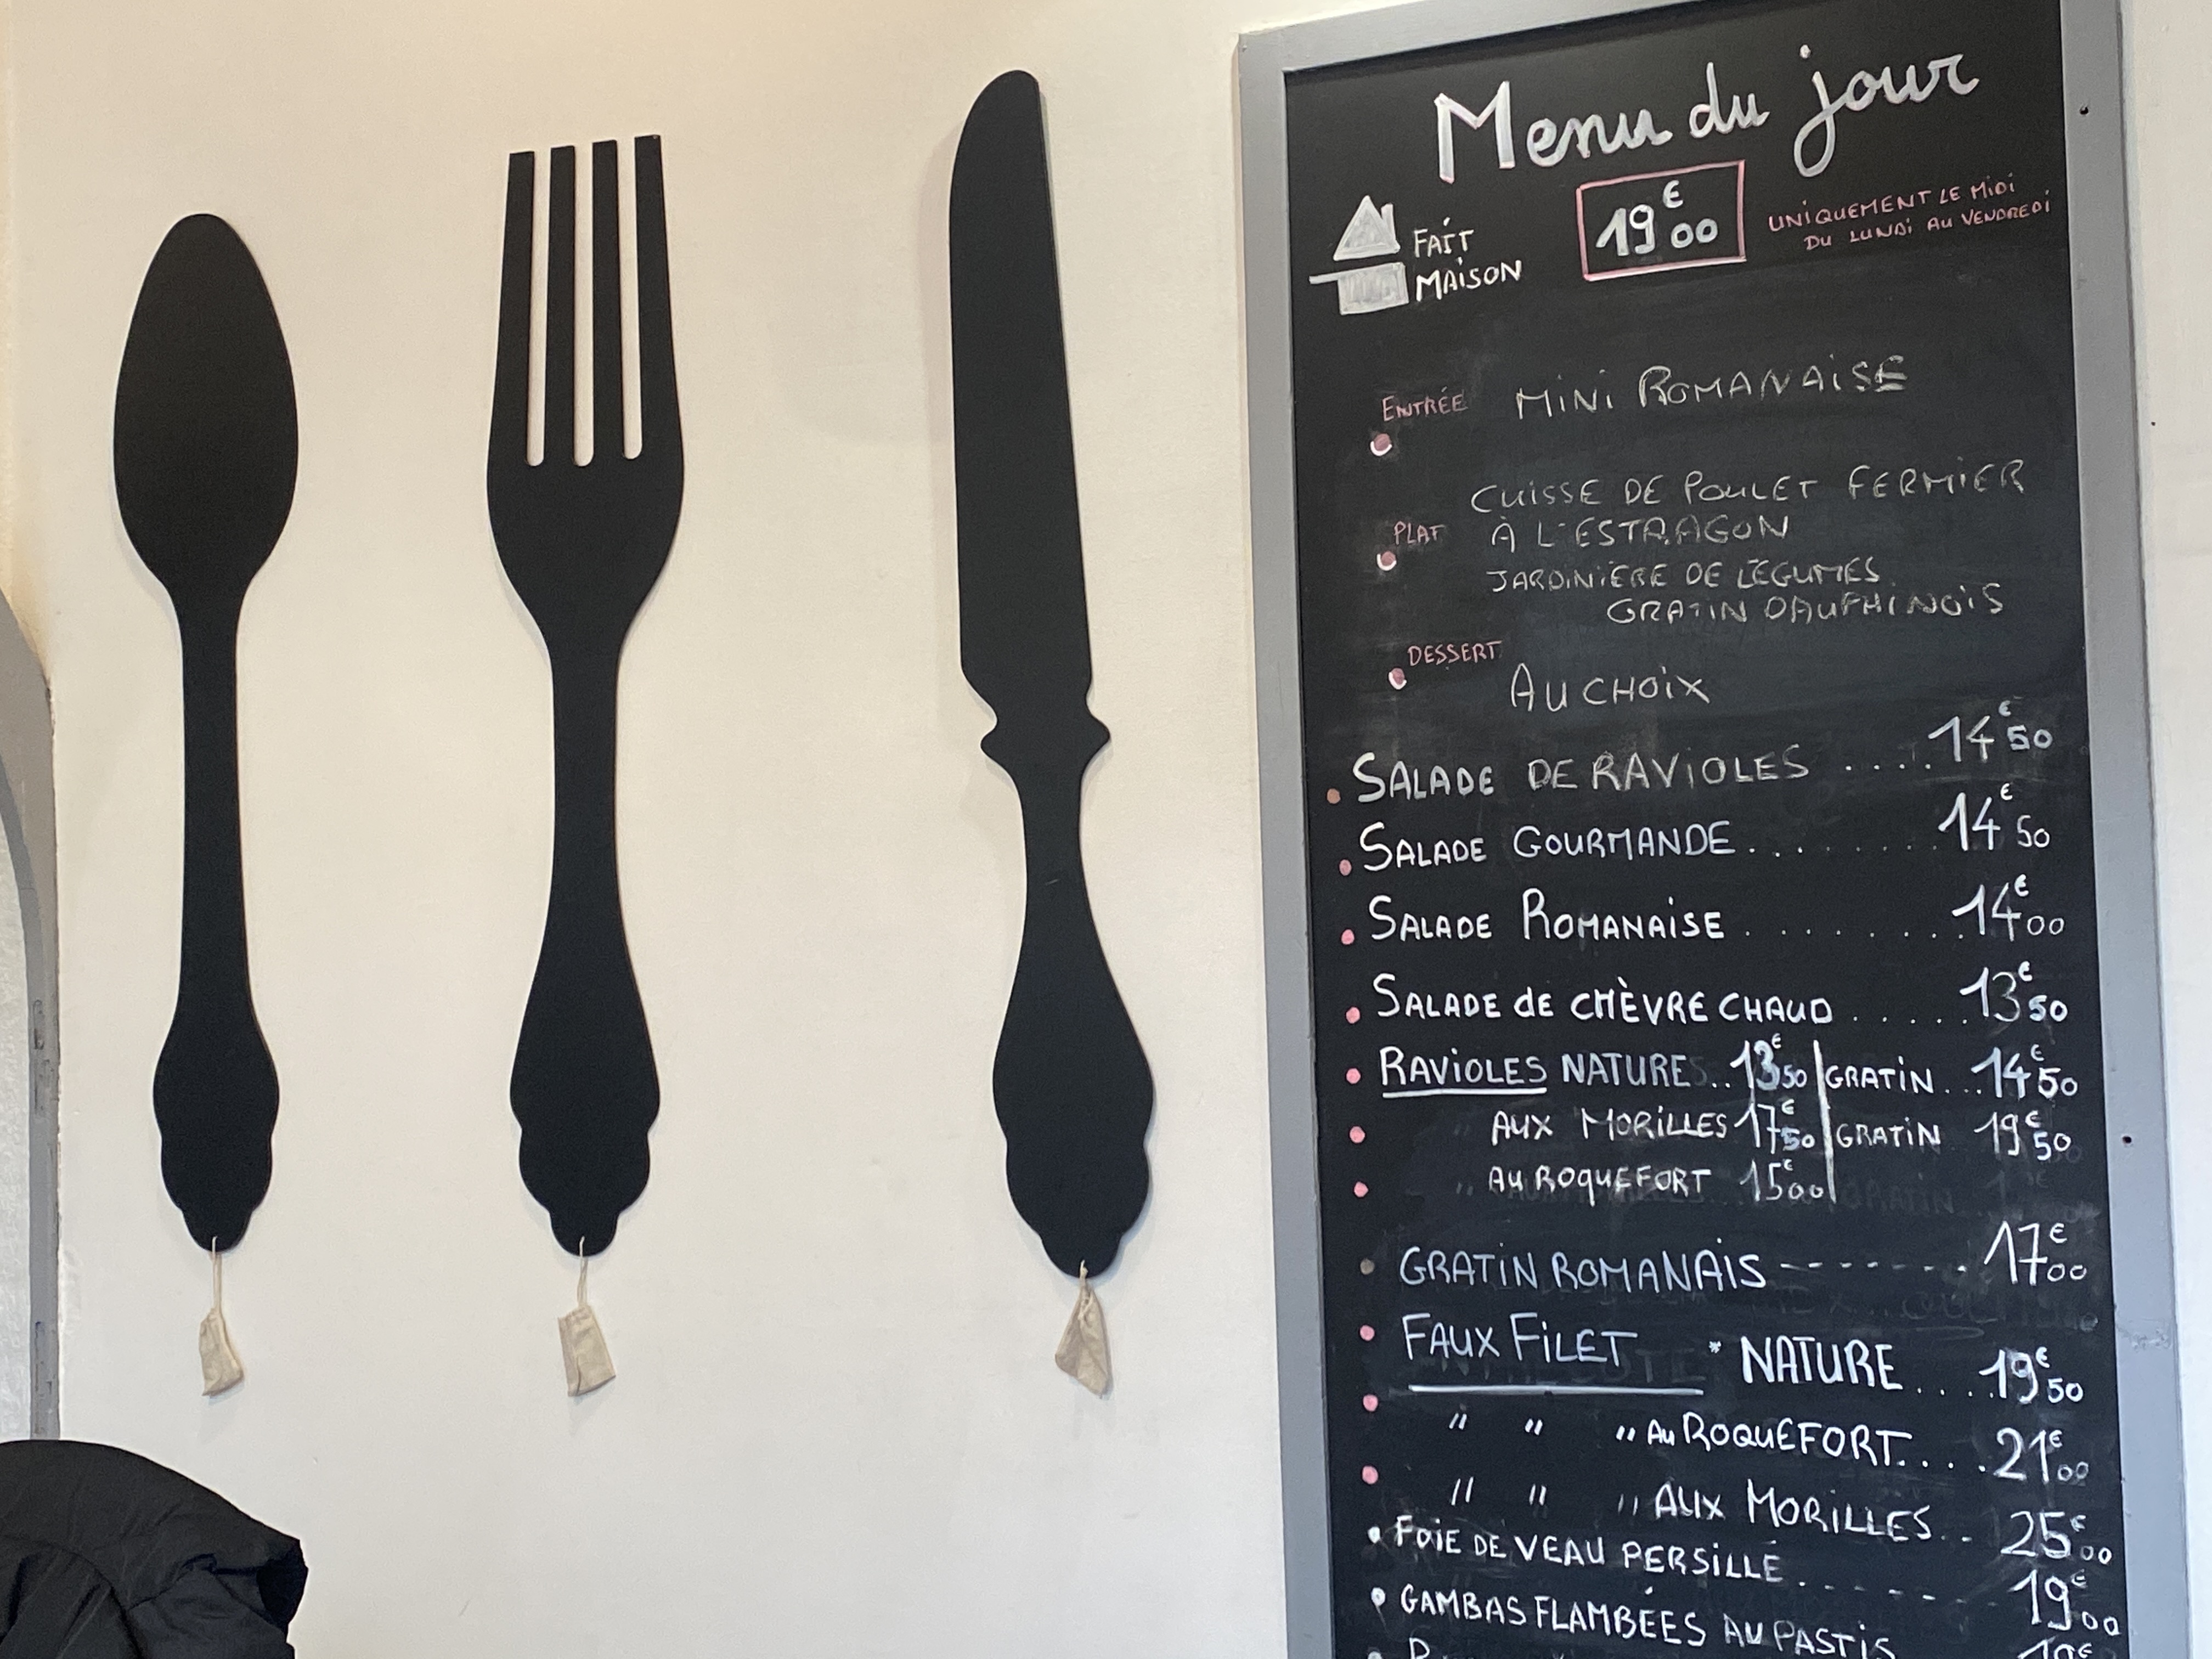 Menu du jour
FAIT
MAISON
19€00
UNIQUEMENT LE MIDI
DU LUNDI AU VENDREDI
ENTRÉE MINI ROMANAISE
CUISSE DE POULET FERMIER
PLAT À L'ESTRAGON
JARDINIÈRE DE LÉGUMES
GRATIN DAUPHINOIS
DESSERT
AU CHOIX
SALADE DE RAVIOLES ..... 14€50
SALADE GOURMANDE ........ 14€50
SALADE ROMANAISE ........ 14€00
SALADE de CHÈVRE CHAUD ..... 13€50
RAVIOLES NATURE .. 13€50 | GRATIN ... 14€50
AUX MORILLES 17€50 | GRATIN 19€50
" AU ROQUEFORT 15€00 |
GRATIN ROMANAIS ------- 17€00
FAUX FILET * NATURE .... 19€50
" " " AU ROQUEFORT .... 21€00
" " " AUX MORILLES .. 25€00
FOIE DE VEAU PERSILLÉ ----- 19€00
GAMBAS FLAMBÉES AU PASTIS